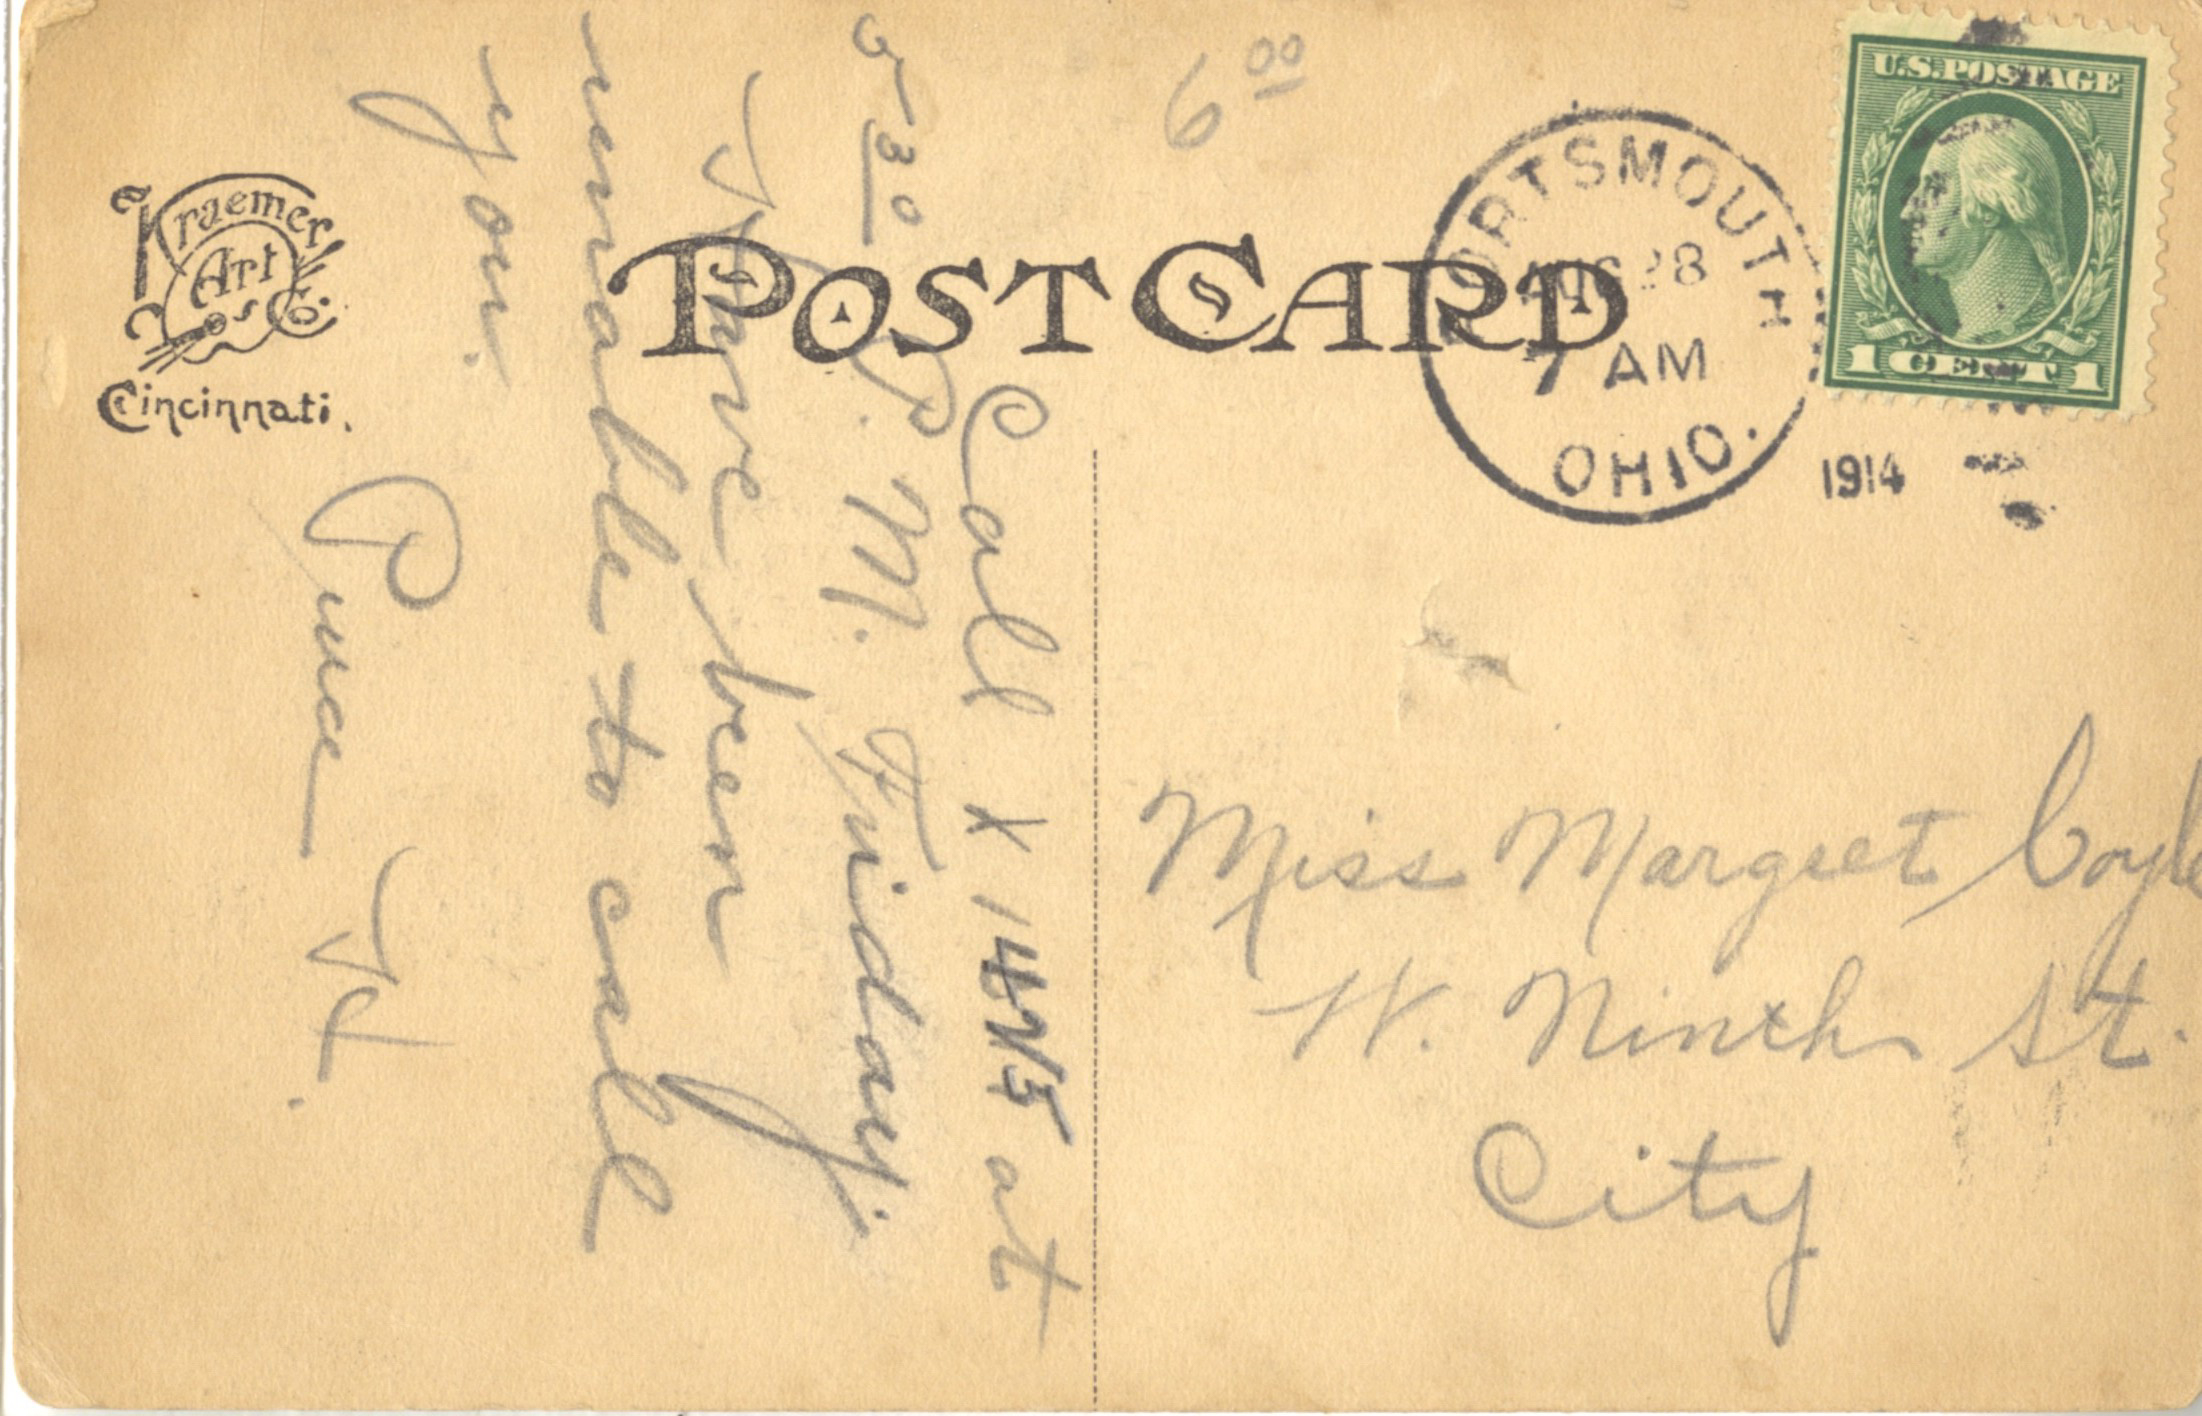 Kraemer
Art
& Co.
Cincinnati.
POST CARD
PORTSMOUTH
AUG 28
7 AM
OHIO.
1914
U.S. POSTAGE
1 CENT 1
6 00
Call X 1425 at
5 30 P. M. Friday.
I have been
unable to call
you.
St.
Miss Margret Coyle
W. Ninth St.
City